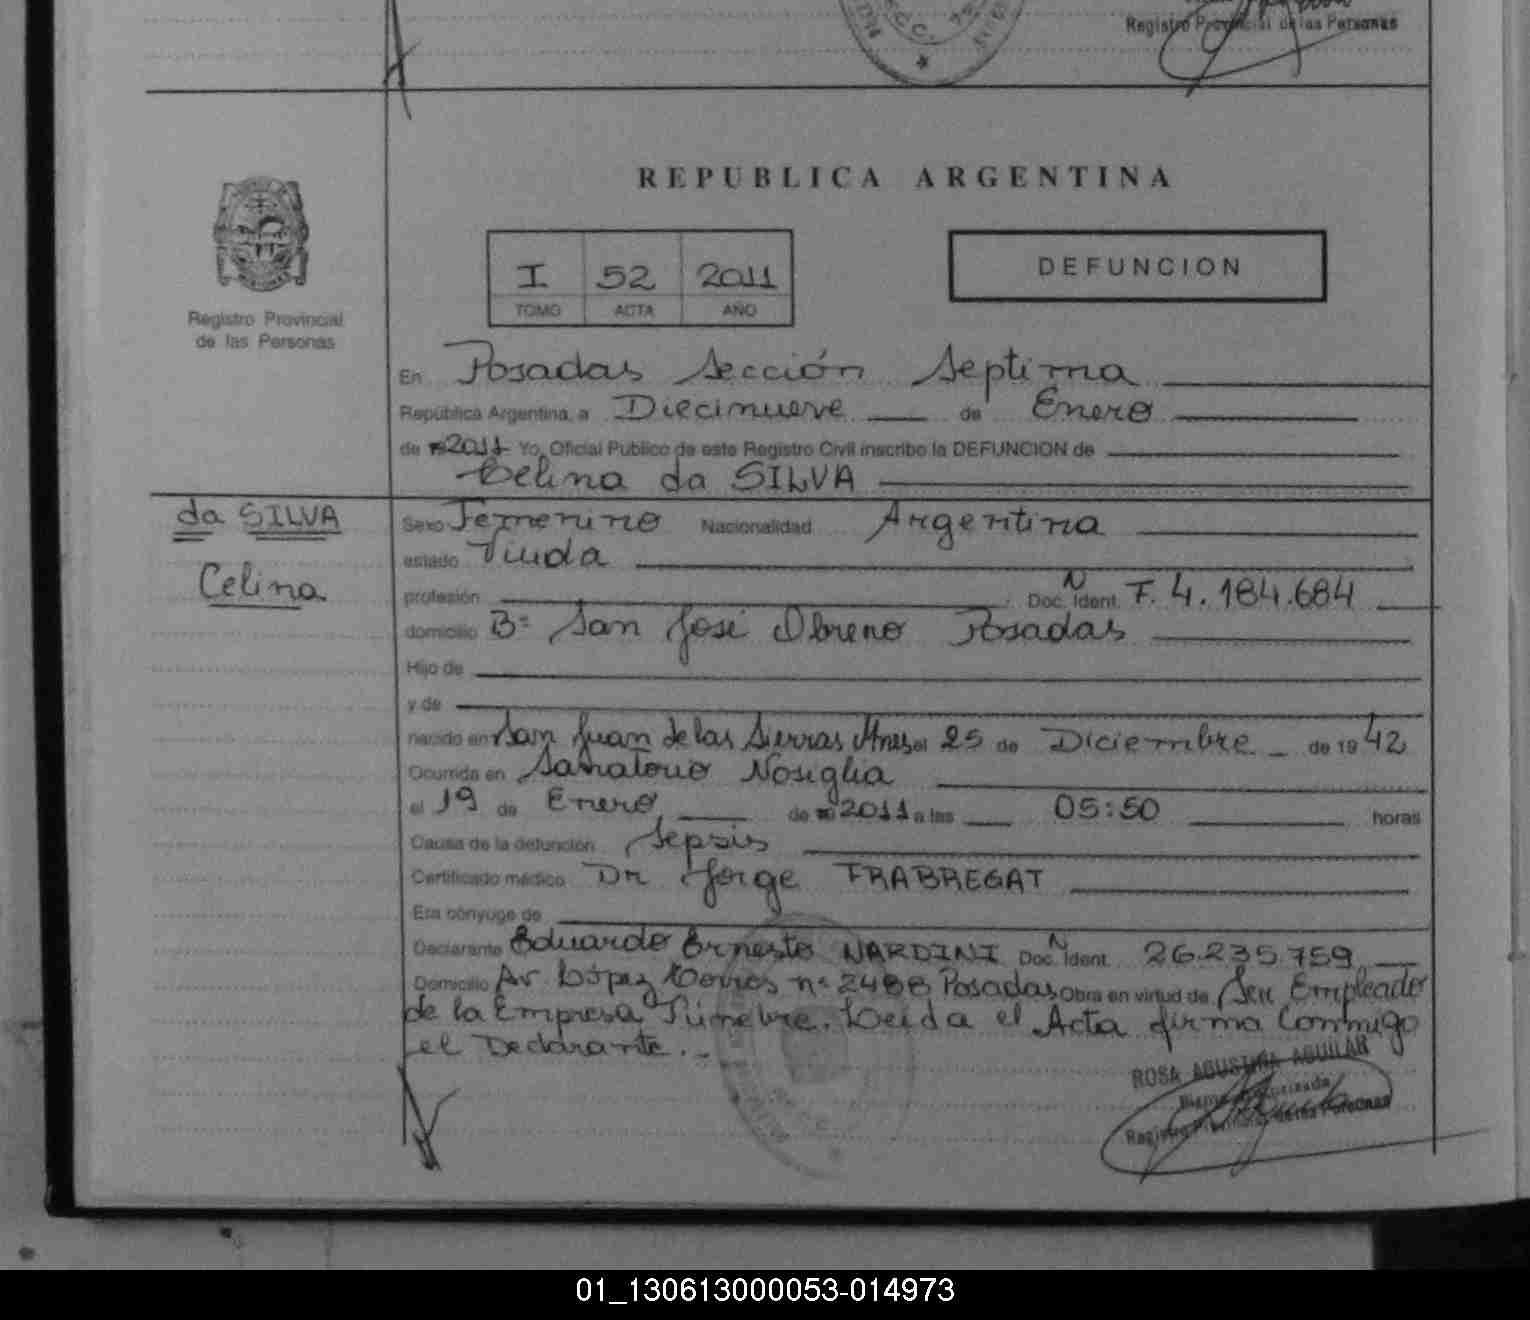 Registro Provincial de las Personas
REPUBLICA ARGENTINA
Registro Provincial
de las Personas
I 52 2011
TOMO ACTA AÑO
DEFUNCION
En Posadas Sección Septima
República Argentina, a Diecinueve de Enero
de 2011 Yo, Oficial Público de este Registro Civil inscribo la DEFUNCION de
Celina da SILVA
da SILVA
Celina
Sexo Femenino Nacionalidad Argentina
estado Viuda
profesión Doc. Ident. N F. 4.184.684
domicilio B° San José Obrero Posadas
Hijo de
y de
nacido en San Juan de las Sierras Mnes el 25 de Diciembre de 19 42
Ocurrida en Sanatorio Nosiglia
el 19 de Enero de 2011 a las 05:50 horas
Causa de la defunción Sepsis
Certificado médico Dr Jorge FRABREGAT
Era cónyuge de
Declarante Eduardo Ernesto NARDINI Doc. Ident. N 26.235.759
Domicilio Av. López Torres n° 2488 Posadas Obra en virtud de Ser Empleado
de la Empresa Fúnebre. Leida el Acta firma Conmigo
el Declarante.
ROSA AGUSTINA AGUILAR
Registro Provincial de las Personas
01_130613000053-014973